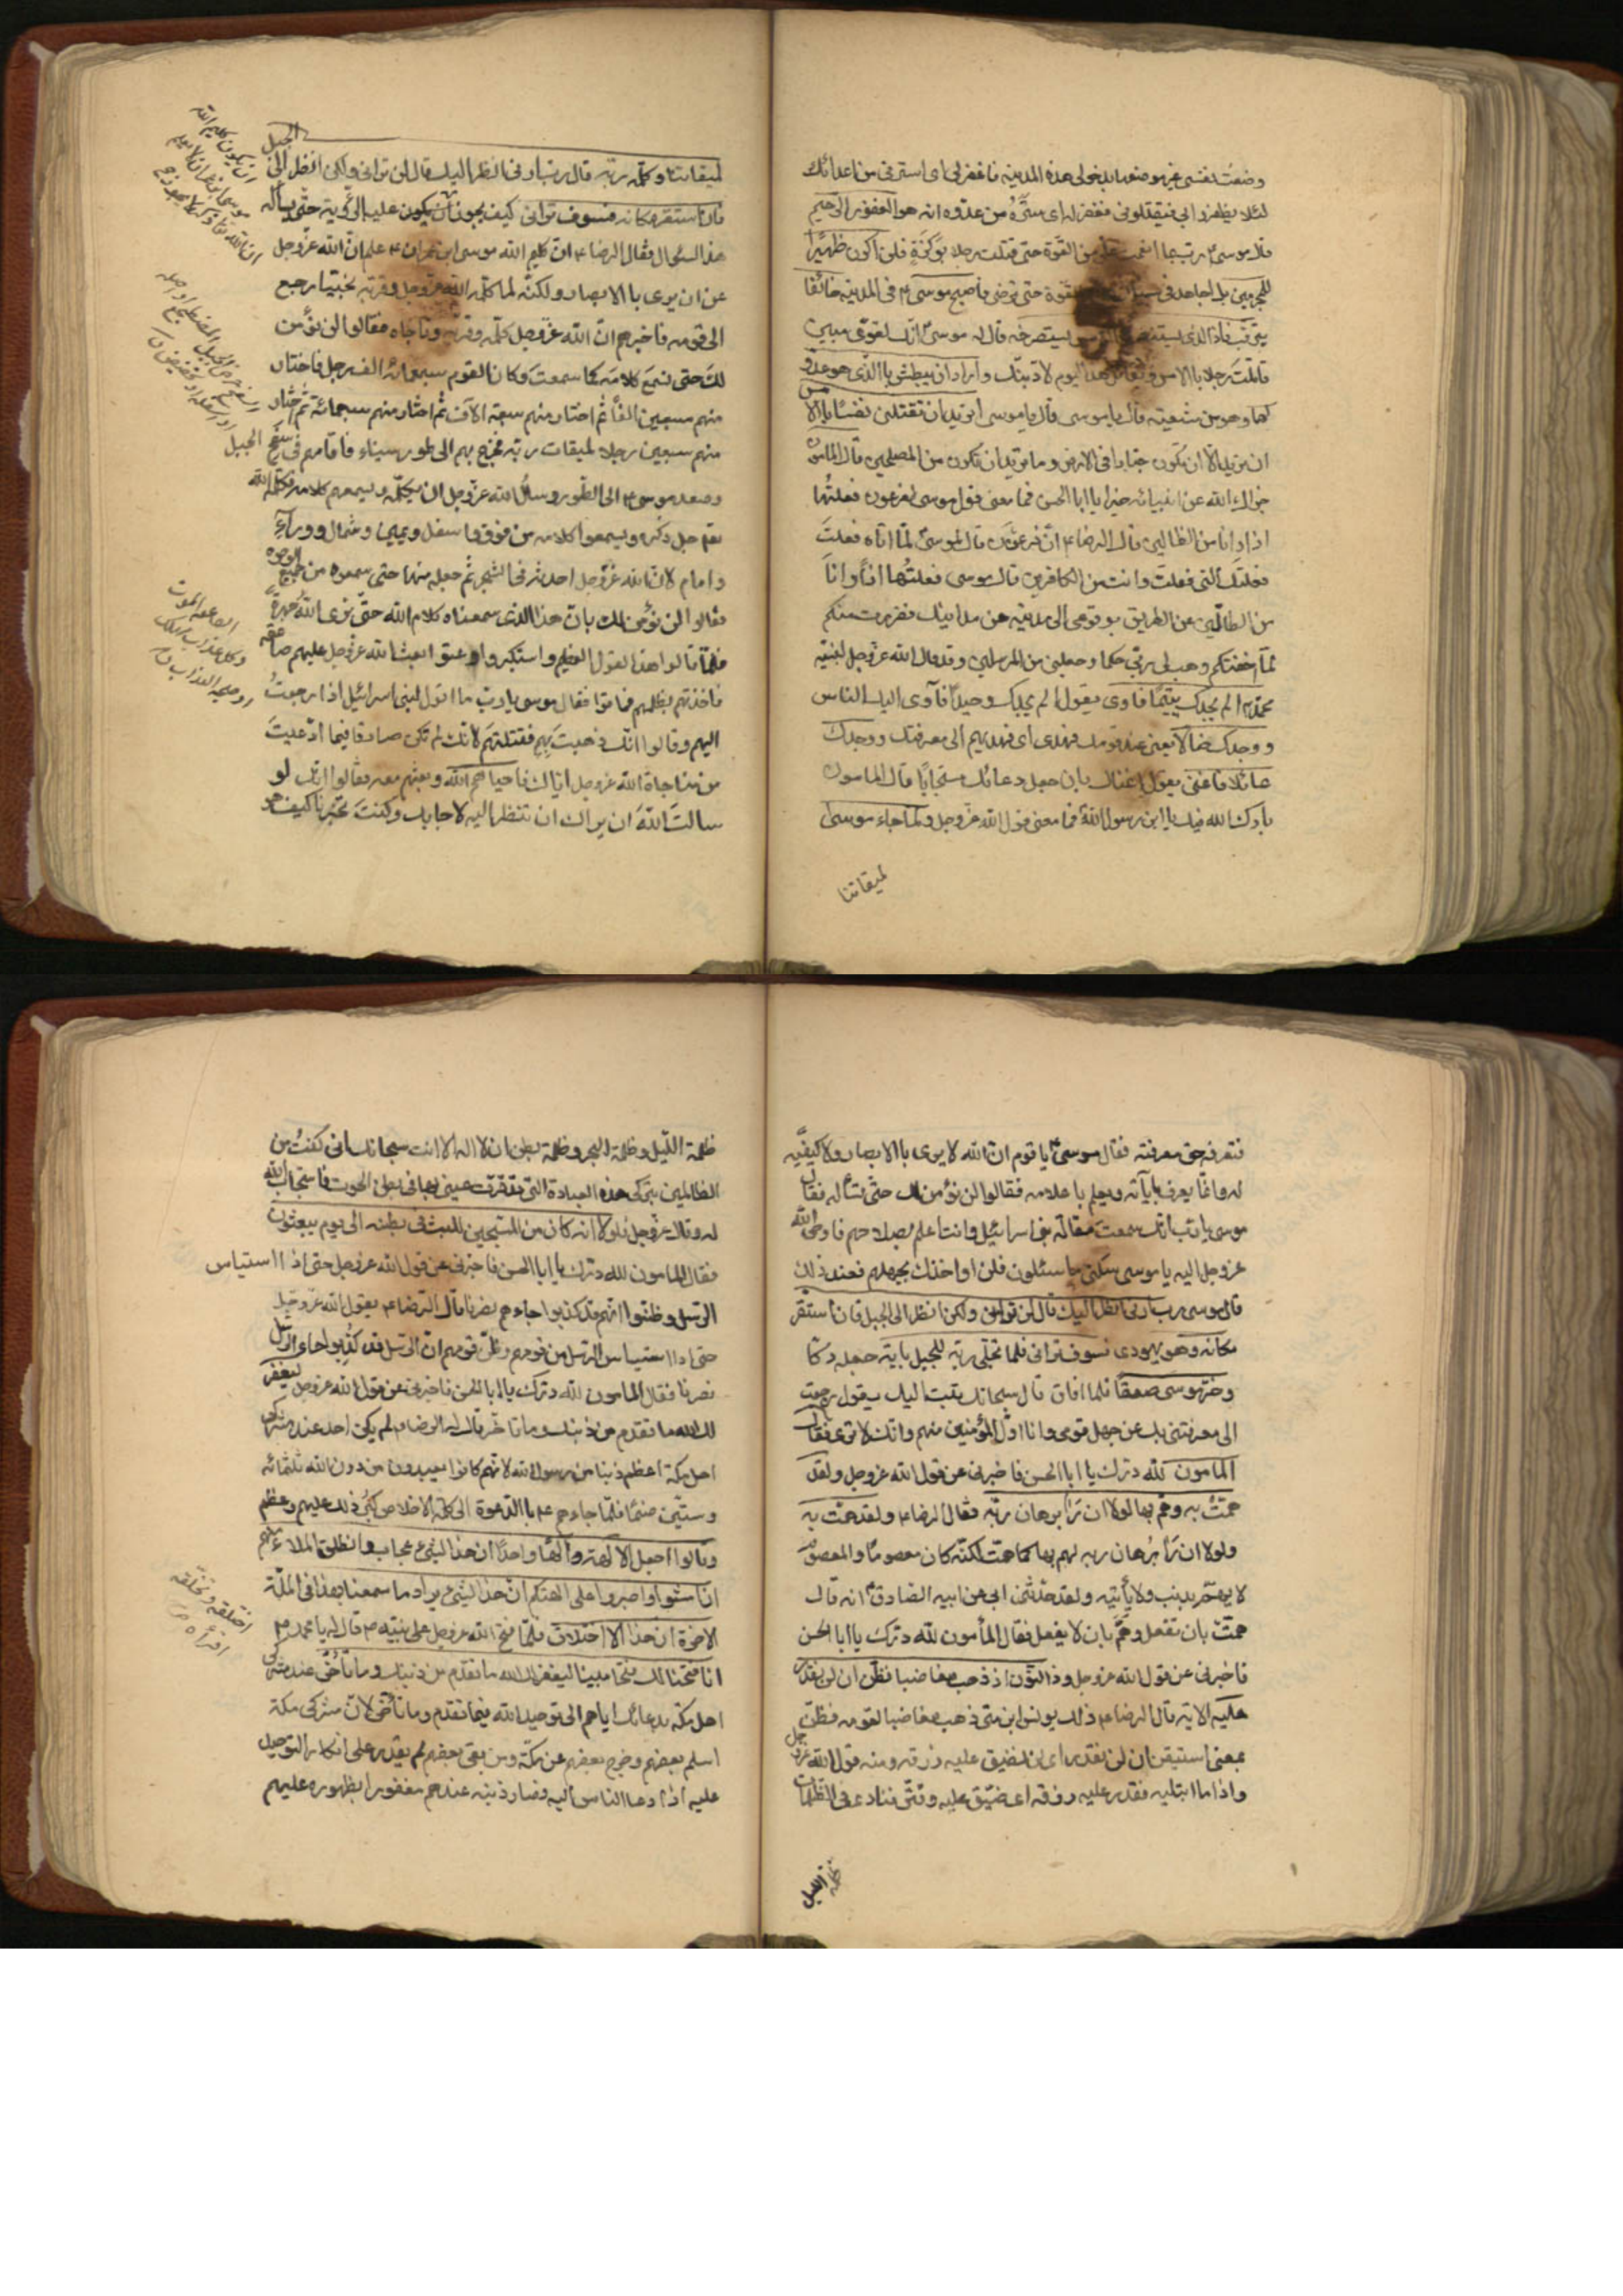 وضعتُ نفسى غير موضعها بدخولى هذه المدينه فاغفرلى اى استرنى من اعدائك
لئلا يظفروا بى فيقتلونى فغفر له اى ستره من عدوّه انه هو الغفور الرحيم
قال موسى ع رب بما انعمت علىّ من القوّة حتى قتلت رجلا بوكزةٍ فلن اكون ظهيرًا
للمجرمين بل اجاهد فى سبيلك القوة حتى ترضى فاصبح موسى ع فى المدينه خائفًا
يترقب فاذا الذى استنصره بالامس يستصرخه قال له موسى انك لغوىّ مبين
قاتلت رجلا باالامس وتقاتل هذا اليوم لاؤدبنّك واراد ان يبطش باالذى هو عدوّ
لهما وهو من شيعته قال ياموسى قال ياموسى اتريد ان تقتلنى كما قتلت نفسًا باالامس
ان تريد الّا ان تكون جبارا فى الارض وما تريد ان تكون من المصلحين قال المامون
جزاك الله عن انبيائه خيرا يا ابا الحسن فما معنى قول موسى لفرعون فعلتُها
اذا وانا من الضالين قال الرضا ع انّ فرعون قال لموسى لمّا اتاه وفعلتَ
فعلتك التى فعلتَ وانت من الكافرين قال موسى فعلتُها اذًا وانا
من الضالّين عن الطريق بوقوعى الى مدينه من مداينك ففررت منكم
لمّا خفتكم فوهب لى ربّى حكما وجعلنى من المرسلين وقد قال الله عزّوجل لنبيّه
محمّد ص الم يجدك يتيمًا فاوى يقول الم يجدك وحيدًا فآوى اليك الناس
ووجدك ضالا يعنى عند قومك فهدى اى هديهم الى معرفتك ووجدك
عائلا فاغنى يقول اغناك بان جعل دعائك مستجابًا قال المامون
بارك الله فيك يا ابن رسول الله فما معنى قول الله عزّوجل ولما جاء موسى
لميقاتنا
الجبل
لميقاتنا وكلّمه ربّه قال ربّ ارنى انظر اليك قال لن ترانى ولكن انظر الى
فان استقرّ مكانه فسوف ترانى كيف يجوز ان يكون كليم الله
هذا السؤال فقال الرضا ع انّ كليم الله موسى ابن عمران ع علم انّ الله عزّوجل
عن ان يرى باالابصار ولكنّه لما كلّمه الله عزوجل وقرّبه نجيّا رجع
الى قومه فاخبرهم انّ الله عزّوجل كلّمه وقرّبه وناجاه فقالوا لن نؤمن
لكَ حتى نسمع كلامَه كما سمعتَ وكان القوم سبعمائة الف رجل فاختار
منهم سبعين الفًا ثم اختار منهم سبعة الآف ثم اختار منهم سبعمائة ثم اختار
منهم سبعين رجلا لميقات ربّه فخرج بهم الى طور سيناء فاقامهم فى سفح الجبل
وصعد موسى ع الى الطّور وسأل الله عزّوجل ان يكلّمه ويسمعهم كلامه فكلّمه الله
تعالى جل ذكره ويسمعوا كلامه من فوق واسفل ويمين وشمال ووراءِ
وامام لانّ الله عزّوجل احدثه فى الشجره ثم جعله منبعثا حتى سمعوه من جميع الوجوه
فقالوا لن نؤمن لك بانّ هذا الذى سمعناه كلام الله حتّى نرى اللهَ جهرةً
فلمّا قالوا هذا القول العظيم واستكبروا وعتوا بعث الله عزّوجل عليهم صاعقه
فاخذتهم بظلمهم فماتوا فقال موسى ياربّ ما اقول لبنى اسرائيل اذا رجعتُ
اليهم وقالوا انّك ذهبتَ بهم فقتلتهم لانّك لم تكن صادقًا فيما ادّعيتَ
من مناجاة الله عزوجل اياك فاحياهم الله وبعثهم معه فقالوا انك لو
سالتَ اللهَ ان يراك ان تنظر اليه لاجابك وكنتَ تخبرنا كيف هو
فنعرفه حق معرفته فقال موسى ع ياقوم ان الله لا يرى باالابصار ولا كيفيّه
له وانّما يعرف باياته ويعلم باعلامه فقالوا لن نؤمن لك حتّى تسأله فقال
موسى يا ربّ انك سمعتَ مقالة بنى اسرائيل وانت اعلم بصلاحهم فاوحى الله
عزوجل اليه ياموسى سلنى ما سئلوك فلن اواخذك بجهلهم فعند ذلك
قال موسى رب ارنى انظر اليك قال لن ترانى ولكن انظر الى الجبل فان استقرّ
مكانه وهو يهوى فسوف ترانى فلما تجلّى ربّه للجبل باية جعله دكّا
وخرّ موسى صعقًا فلما افاق قال سبحانك تبت اليك يقول رجعت
الى معرفتى بك عن جهل قومى وانا اوّل المؤمنين منهم وانك لا ترى فقال
المامون لله درّك يا ابا الحسن فاخبرنى عن قول الله عزوجل ولقد
همّت به وهمّ بها لولا ان رأ برهان ربّه فقال الرضا ع ولقد همّت به
ولولا ان رأ برُهان ربه لهم بها كما همّت لكنّه كان معصومًا والمعصوم
لا يهمّ بذنب ولا يأتيه ولقد حدّثنى ابى عن ابيه الصّادق ع انه قال
همّت بان تفعل وهَمّ بان لا يفعل فقال المأمون لله درّك يا ابا الحسن
فاخبرنى عن قول الله عزوجل وذا النّون اذ ذهب مغاضبا فظن ان لن نقدر
عليه الاية قال الرضا ع ذلك يونس ابن متّى ذهب مغاضبا لقومه فظنّ
بمعنى استيقن ان لن نقدر اى لن نضيق عليه رزقه ومنه قول الله عزوجل
واذاما ابتليه فقدر عليه رزقه اى ضيّق عليه وقتّر فنادى فى الظلمات
ظلمة الليل
ظلمة اللّيل وظلمة البحر وظلمة بطن ان لا اله الا انت سبحانك انى كنتُ من
الظالمين بتركى هذه العبادة التى قد قرّت عينى بها فى بطن الحوت فاستجاب الله
له وقال عزّوجل فلولا انه كان من المسبّحين للبث فى بطنه الى يوم يبعثون
فقال المامون لله درّك يا ابا الحسن فاخبرنى عن قول الله عزوجل حتى اذا استياس
الرّسل وظنّوا انّهم قد كذبوا جاءهم نصرنا قال الرّضا ع يقول الله عزّوجلّ
حتى اذا استياس الرّسل من قومهم وظنّ قومهم انّ الرّسل قد كُذِبوا جاء الرّسل
نصرنا فقال المامون لله درّك يا ابا الحسن فاخبرنى عن قول الله عزوجل ليغفر
لك الله ما تقدم من ذنبك وما تاخّر قال الرضا ع لم يكن احد عند مشركى
اهل مكّة اعظم ذنبًا من رسول الله لانّهم كانوا يعبدون من دون الله ثلثمائه
وستّين صنمًا فلمّا جاءهم ع باالدّعوة الى كلمة الاخلاص كبُر ذلك عليهم وعظم
وقالوا اجعل الالهة الٰهًا واحدًا ان هذا لشئ عجاب وانطلق الملاء منهم
ان امشوا واصبروا على الهتكم انّ هذا لشئ يراد ما سمعنا بهذا فى الملّة
الاخرة ان هذا الّا اختلاق فلمّا فتح الله عزوجل على نبيّه ص قال له يا محمد
انا فتحنا لك فتحًا مبينا ليغفر لك الله ما تقدم من ذنبك وما تأخّر عند مشركى
اهل مكة بدعائك اياهم الى توحيد الله فيما تقدم وما تأخّر لانّ مشركى مكة
اسلم بعضهم وخرج بعضهم عن مكّة ومن بقى بعضهم لم يقدر على انكار التوحيد
عليه اذا دعا الناس اليه فصار ذنبه عندهم مغفورا بظهوره عليهم